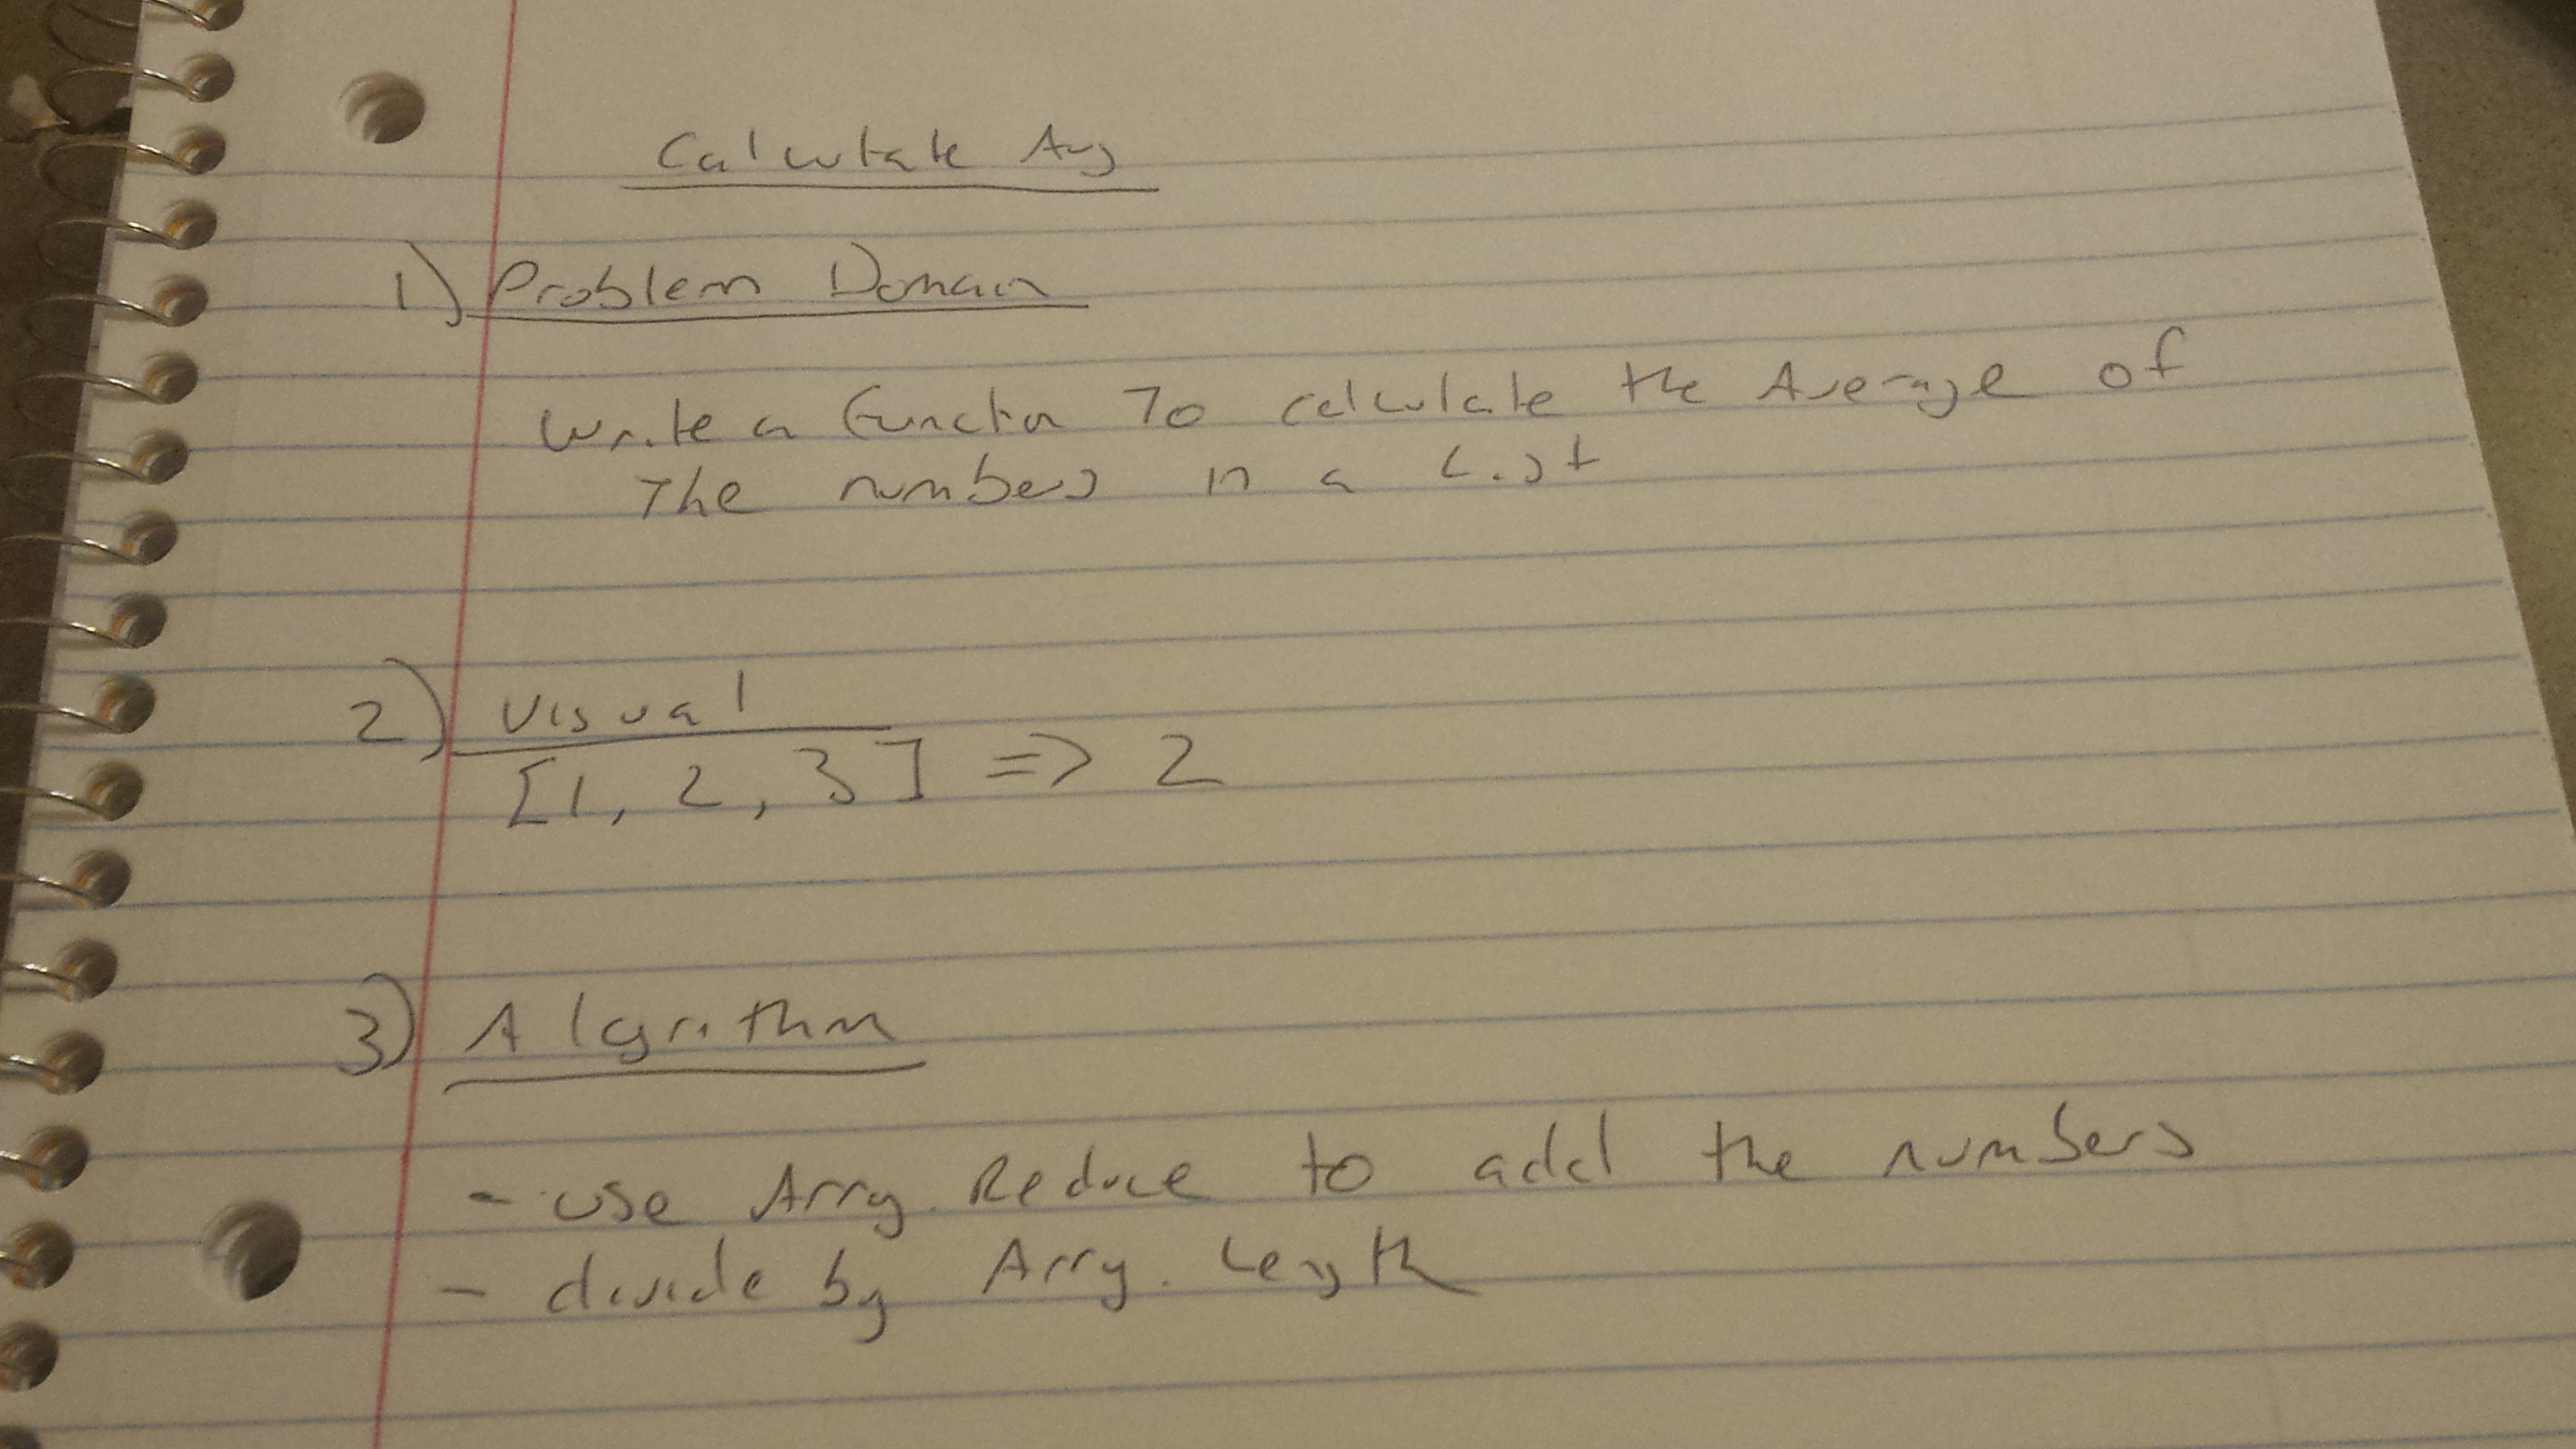 Calculate Avg
1) Problem Domain
Write a function To calculate the Average of
The numbers in a List
2) Visual
[1, 2, 3] => 2
3) Algorithm
- use Arry. Reduce to add the numbers
- divide by Arry. Length